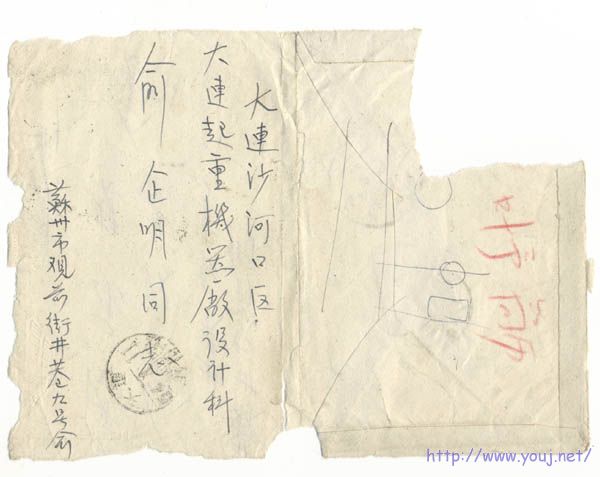 大連沙河口区
大連起重機器廠設計科
俞企明同志
蘇州市观前街井巷九号俞
http://www.youj.net/